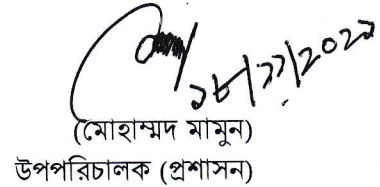 ১৮/১১/২০২১
(মোহাম্মদ মামুন)
উপপরিচালক (প্রশাসন)